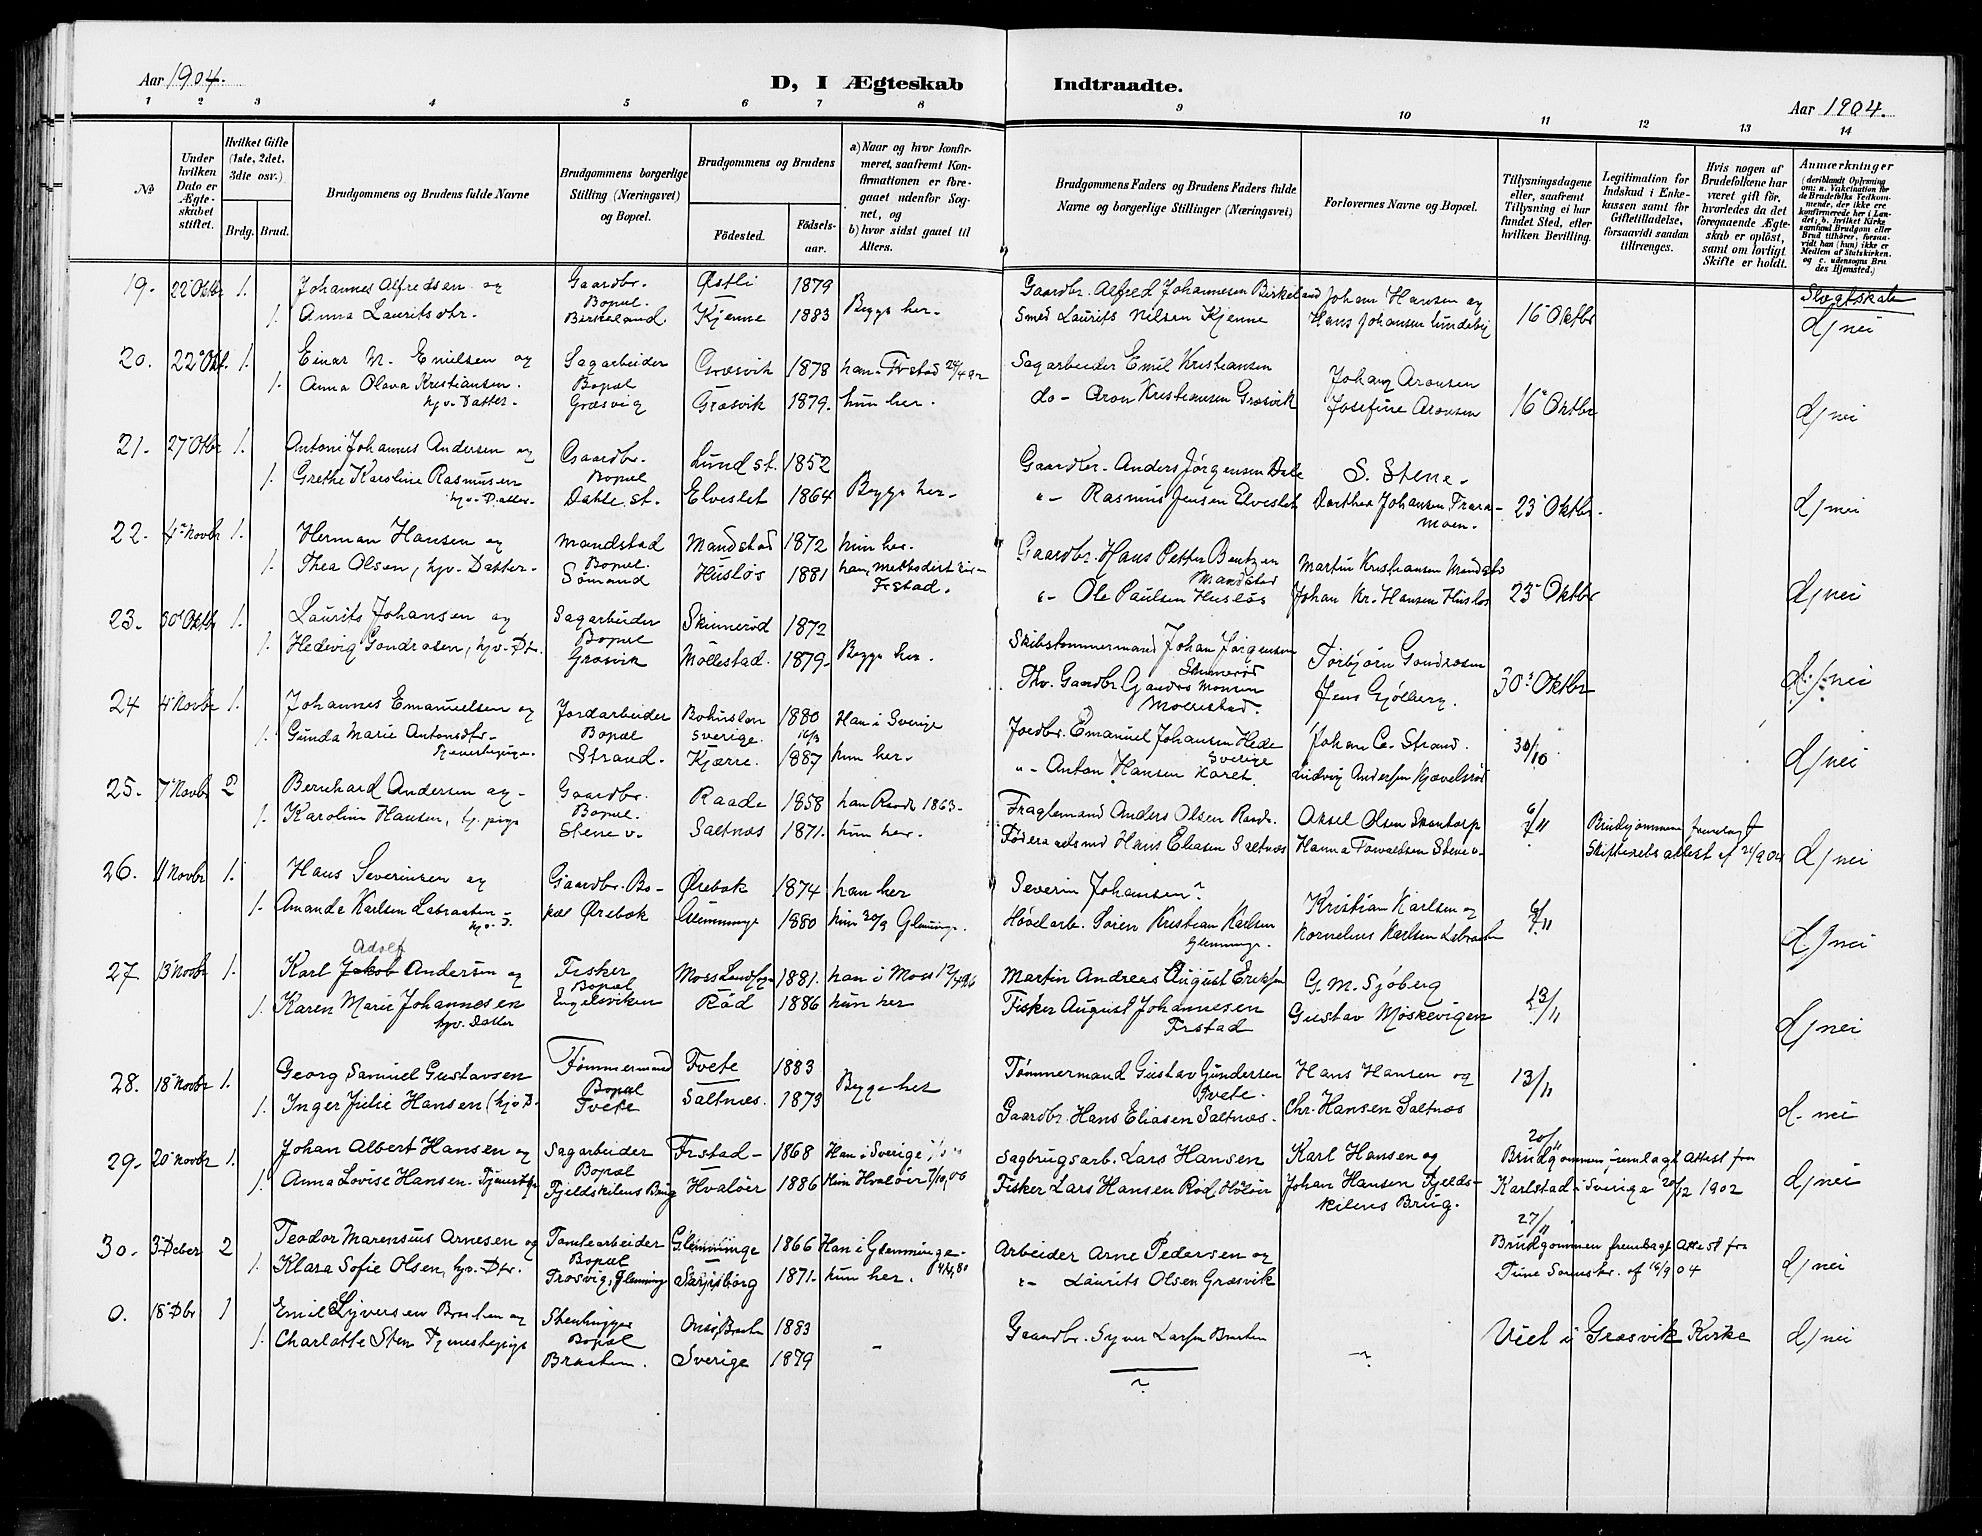 Aar 1904.
D, I Ægteskab Indtraadte.
Aar 1904.
1 2 3 4 5 6 7 8 9 10 11 12 13 14
No
Under hvilken Dato er Ægteskabet stiftet.
Hvilket Gifte (1ste, 2det, 3die osv.)
Brdg. Brud.
Brudgommens og Brudens fulde Navne
Brudgommens borgerlige Stilling (Næringsvei) og Bopæl.
Brudgommens og Brudens
Fødested.
Fødselsaar.
a) Naar og hvor konfirmeret, saafremt Konfirmationen er foregaaet udenfor Sognet, og
b) hvor sidst gaaet til Alters.
Brudgommens Faders og Brudens Faders fulde Navne og borgerlige Stillinger (Næringsvei)
Forlovernes Navne og Bopæl.
Tillysningsdagene eller, saafremt Tillysning ei har fundet Sted, efter hvilken Bevilling.
Legitimation for Indskud i Enkekassen samt for Giftetilladelse, forsaavidt saadan tiltrænges.
Hvis nogen af Brudefolkene har været gift før, hvorledes da det foregaaende Ægteskab er opløst, samt om lovligt Skifte er holdt.
Anmærkninger
(deriblandt Oplysning om: a. Vakcination for de Brudefolks Vedkommende, der ikke ere konfirmerede her i Landet; b. hvilket Kirkesamfund Brudgom eller Brud tilhører, forsaavidt han (hun) ikke er Medlem af Statskirken, og c. udensogns Brudes Hjemsted.)
19. 22 Oktbr 1. Johannes Alfredsen og Gaardbr. Østli 1879 Gaardbr. Alfred Johannesen Birkeland Johan Hansen og Slægtskab
1. Anna Lauritsdtr. Bopæl. Birkeland. Kjenne 1883 Begge her. Smed Laurits Nilsen Kjenne Hans Johansen Lundeby 16 Oktbr d/ nei
20. 22 Okt. 1. Einar M. Emilsen og Sagarbeider Græsvik 1878 han Frstad Sagarbeider Emil Kristiansen Johan Aronsen
1. Anna Olava Kristiansen. hjv. Datter. Bopæl Græsvig Græsvik 1879. hun her. do - Aron Kristiansen Græsvik Josefine Aronsen 16 Oktbr d/ nei
21. 27 Oktbr 1. Antoni Johannes Andersen og Gaardbr. Lund st. 1852 Gaardbr. Anders Jørgensen Dale S. Stene.
1. Grethe Karoline Rasmusen hjv. Datter. Bopæl Dahle. st. Elveslet 1864 Begge her. " - Rasmus Jensen Elveslet Dorthea Johansen 23 Oktbr. d/ nei
22. 4 Novbr 1. Herman Hansen og Mandstad Mandstad 1872 hun her. Gaardbr. Hans Petter Bentzen Mandstad Martin Kristiansen
1. Thea Olsen, hjv. Datter. Bopæl. Sømand Husløs 1881 han, Frstad. " - Ole Paulsen Husløs Johan Kr. Hansen Husløs 23 Oktbr d/ nei
23. 30 Oktbr 1. Laurits Johansen og Sagarbeider Skinnerød 1872 Skibstømmermand Johan Jørgensen Torbjørn Gondrosen
1. Hedevig Gondrosen, hjv. Dt. Bopæl Græsvik Møllestad. 1879. Begge her. Gaardbr. Møllestad. Jens Gjølberg. 30 Oktbr d/ nei
24 4 Novbr 1. Johannes Emanuelsen og Jordarbeider Bohuslen Sverige. 1880 Han i Sverige Jordbr. Emanuel Johansen Hede Sverige Johan C. Strand. 30/10
1. Gunda Marie Antonsdtr. Bopæl Strand. Kjærre. 1887 hun her. " - Anton Hansen Karet. Ludvig Andersen d/ nei
25. 7 Novbr 2 Bernhard Andersen og Gaardbr. Raade 1858 han Raade 1863. Anders Olsen Raade. Aksel Olsen
1. Karoline Hansen, hj. pige Bopæl. Stene v. Saltnæs 1871. hun her. Hans Eliasen Saltnæs Hanna Torvaldsen Stene v. Brudgommen Skifteretsattest af 21/9 04 d/ nei
26. 11 Novbr 1. Hans Severinsen og Gaardbr. Bo- Ørebæk 1874 han her Severin Johansen ? Kristian Karlsen og
1. Amanda Karlsen Labraaten hjv. D. pæl Ørebæk Glemminge 1880 hun 30/9 Glemminge. Høvelarb. Søren Kristian Karlsen Glemminge. Kornelius Karlsen Labraaten d/ nei
27. 13 Novbr 1. Karl Jakob Adolf Andersen og Fisker Moss Landsogn 1881. han i Moss Martin Andreas August Eriksen G. M. Sjøberg
1. Karen Marie Johannesen hjv. Datter Bopæl Engelsviken Rød 1886 hun her Fisker August Johannesen Frstad Gustav Moskevigen 13/11 d/ nei
28. 18 Novbr 1. Georg Samuel Gustavsen Tømmermand Tvete 1883 Tømmermand Gustav Gundersen Tvete. Hans Hansen og 13/11
1. Inger Julie Hansen (hjv D. Bopæl Tvete Saltnæs. 1873 Begge her Gaardbr. Hans Eliasen Saltnæs. Chr. Hansen Saltnæs d. nei
29. 20 Novbr 1. Johan Albert Hansen og Sagarbeider Frstad - 1868 Han i Sverige Sagbrugsarb. Lars Hansen Karl Hansen og 20/11 Brudgommen fremlagt attest fra
1. Anna Lovise Hansen. Bopæl Fjeldskilens Brug Hvaløer 1886 Hun Hvaløer Fisker Lars Hansen Rød, Johan Hansen Fjeldskilens Brug. Karlstad i Sverige 20/12 1902 d/ nei
30. 3 Deber 2 Teodor Marensius Arnesen og Tomtearbeider Glemminge 1866 Han i Glemminge. Arbeider Arne Pedersen og 27/11 Brudgommen fremlagt attest fra
1. Klara Sofie Olsen, hjv. Dtr. Bopæl Trosvig, Glemminge Sarpsborg 1871. hun her. " - Laurits Olsen Græsvik Tune Sorenskr. af 16/9 04 d/ nei
0. 18 Dbr 1 Emil Syversen Braaten og Stenhugger Onsø, Braaten 1883 Gaardbr. Syver Larsen Braaten Viet i Græsvik Kirke d/ nei
1. Charlotte Sten Tjenestepige Bopæl Braaten. Sverige 1879 - ?